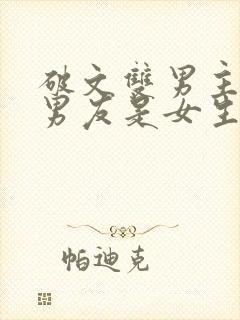 破文雙男主
男友是女生
帕迪克